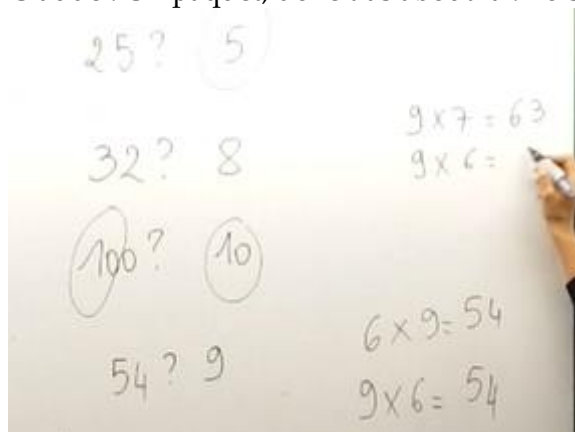 25? 5
32? 8
100? 10
54? 9
9 x 7 = 63
9 x 6 =
6 x 9 = 54
9 x 6 = 54